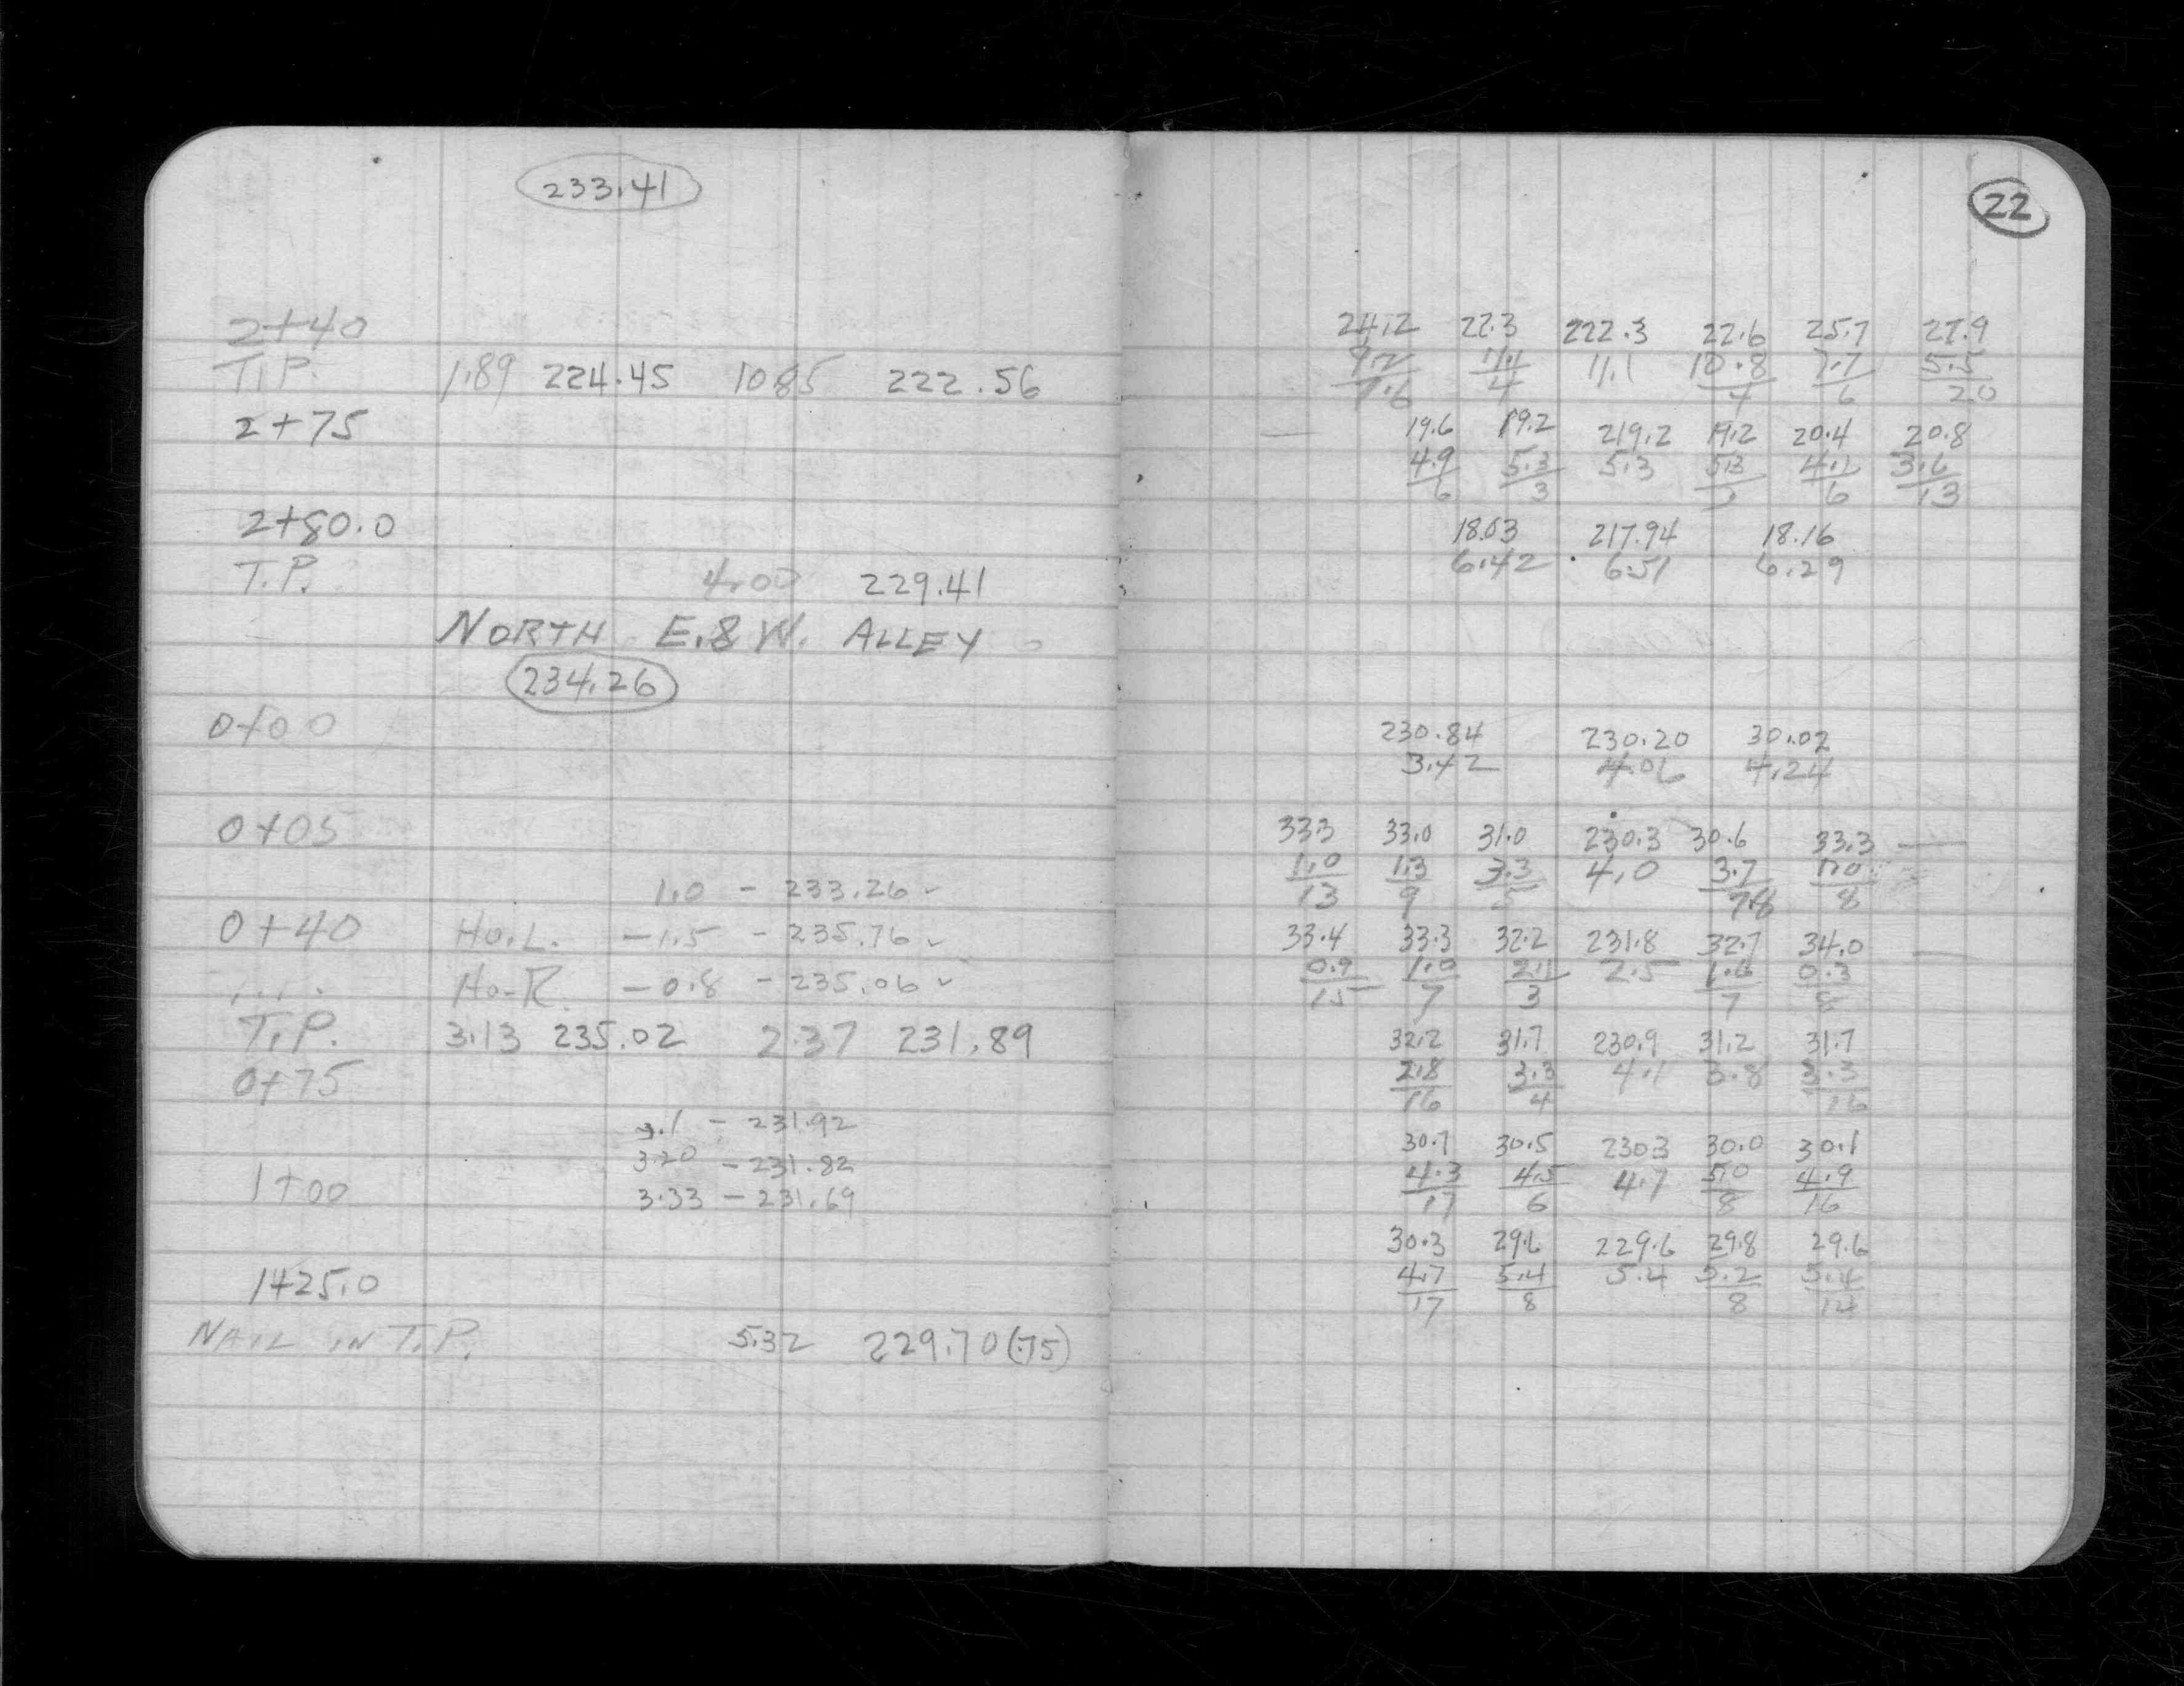 233.41
2+40
T.P. 1.89 224.45 10.85 222.56
2+75
2+80.0
T.P. 4.00 229.41
NORTH E. & W. ALLEY
234.26
0+00
0+05
1.0 - 233.26 ✓
0+40 Ho.L. -1.5 - 235.76 ✓
Ho-R. -0.8 - 235.06 ✓
T.P. 3.13 235.02 2.37 231.89
0+75
3.1 - 231.92
3.20 - 231.82
1+00
3.33 - 231.69
1+25.0
NAIL IN T.P. 5.32 229.70 (.75)
22
24.2 22.3 222.3 22.6 25.7 27.9
9.2 11.1 10.8 7.7 5.5
7.6 4 6 20
19.6 19.2 219.2 19.2 20.4 20.8
4.9 5.3 5.3 5.3 4.1 3.6
6 3 6 13
18.03 217.94 18.16
6.42 6.51 6.29
230.84 230.20 30.02
3.42 4.06 4.24
33.3 33.0 31.0 230.3 30.6 33.3
1.0 1.3 3.3 4.0 3.7 1.0
13 9 5 8
33.4 33.3 32.2 231.8 32.7 34.0
0.9 1.0 2.1 2.5 1.6 0.3
15 7 3 7 8
32.2 31.7 230.9 31.2 31.7
2.8 3.3 4.1 3.8 3.3
16 4 16
30.7 30.5 230.3 30.0 30.1
4.3 4.5 4.7 5.0 4.9
17 6 8 16
30.3 29.6 229.6 29.8 29.6
4.7 5.4 5.4 5.2 5.4
17 8 8 14